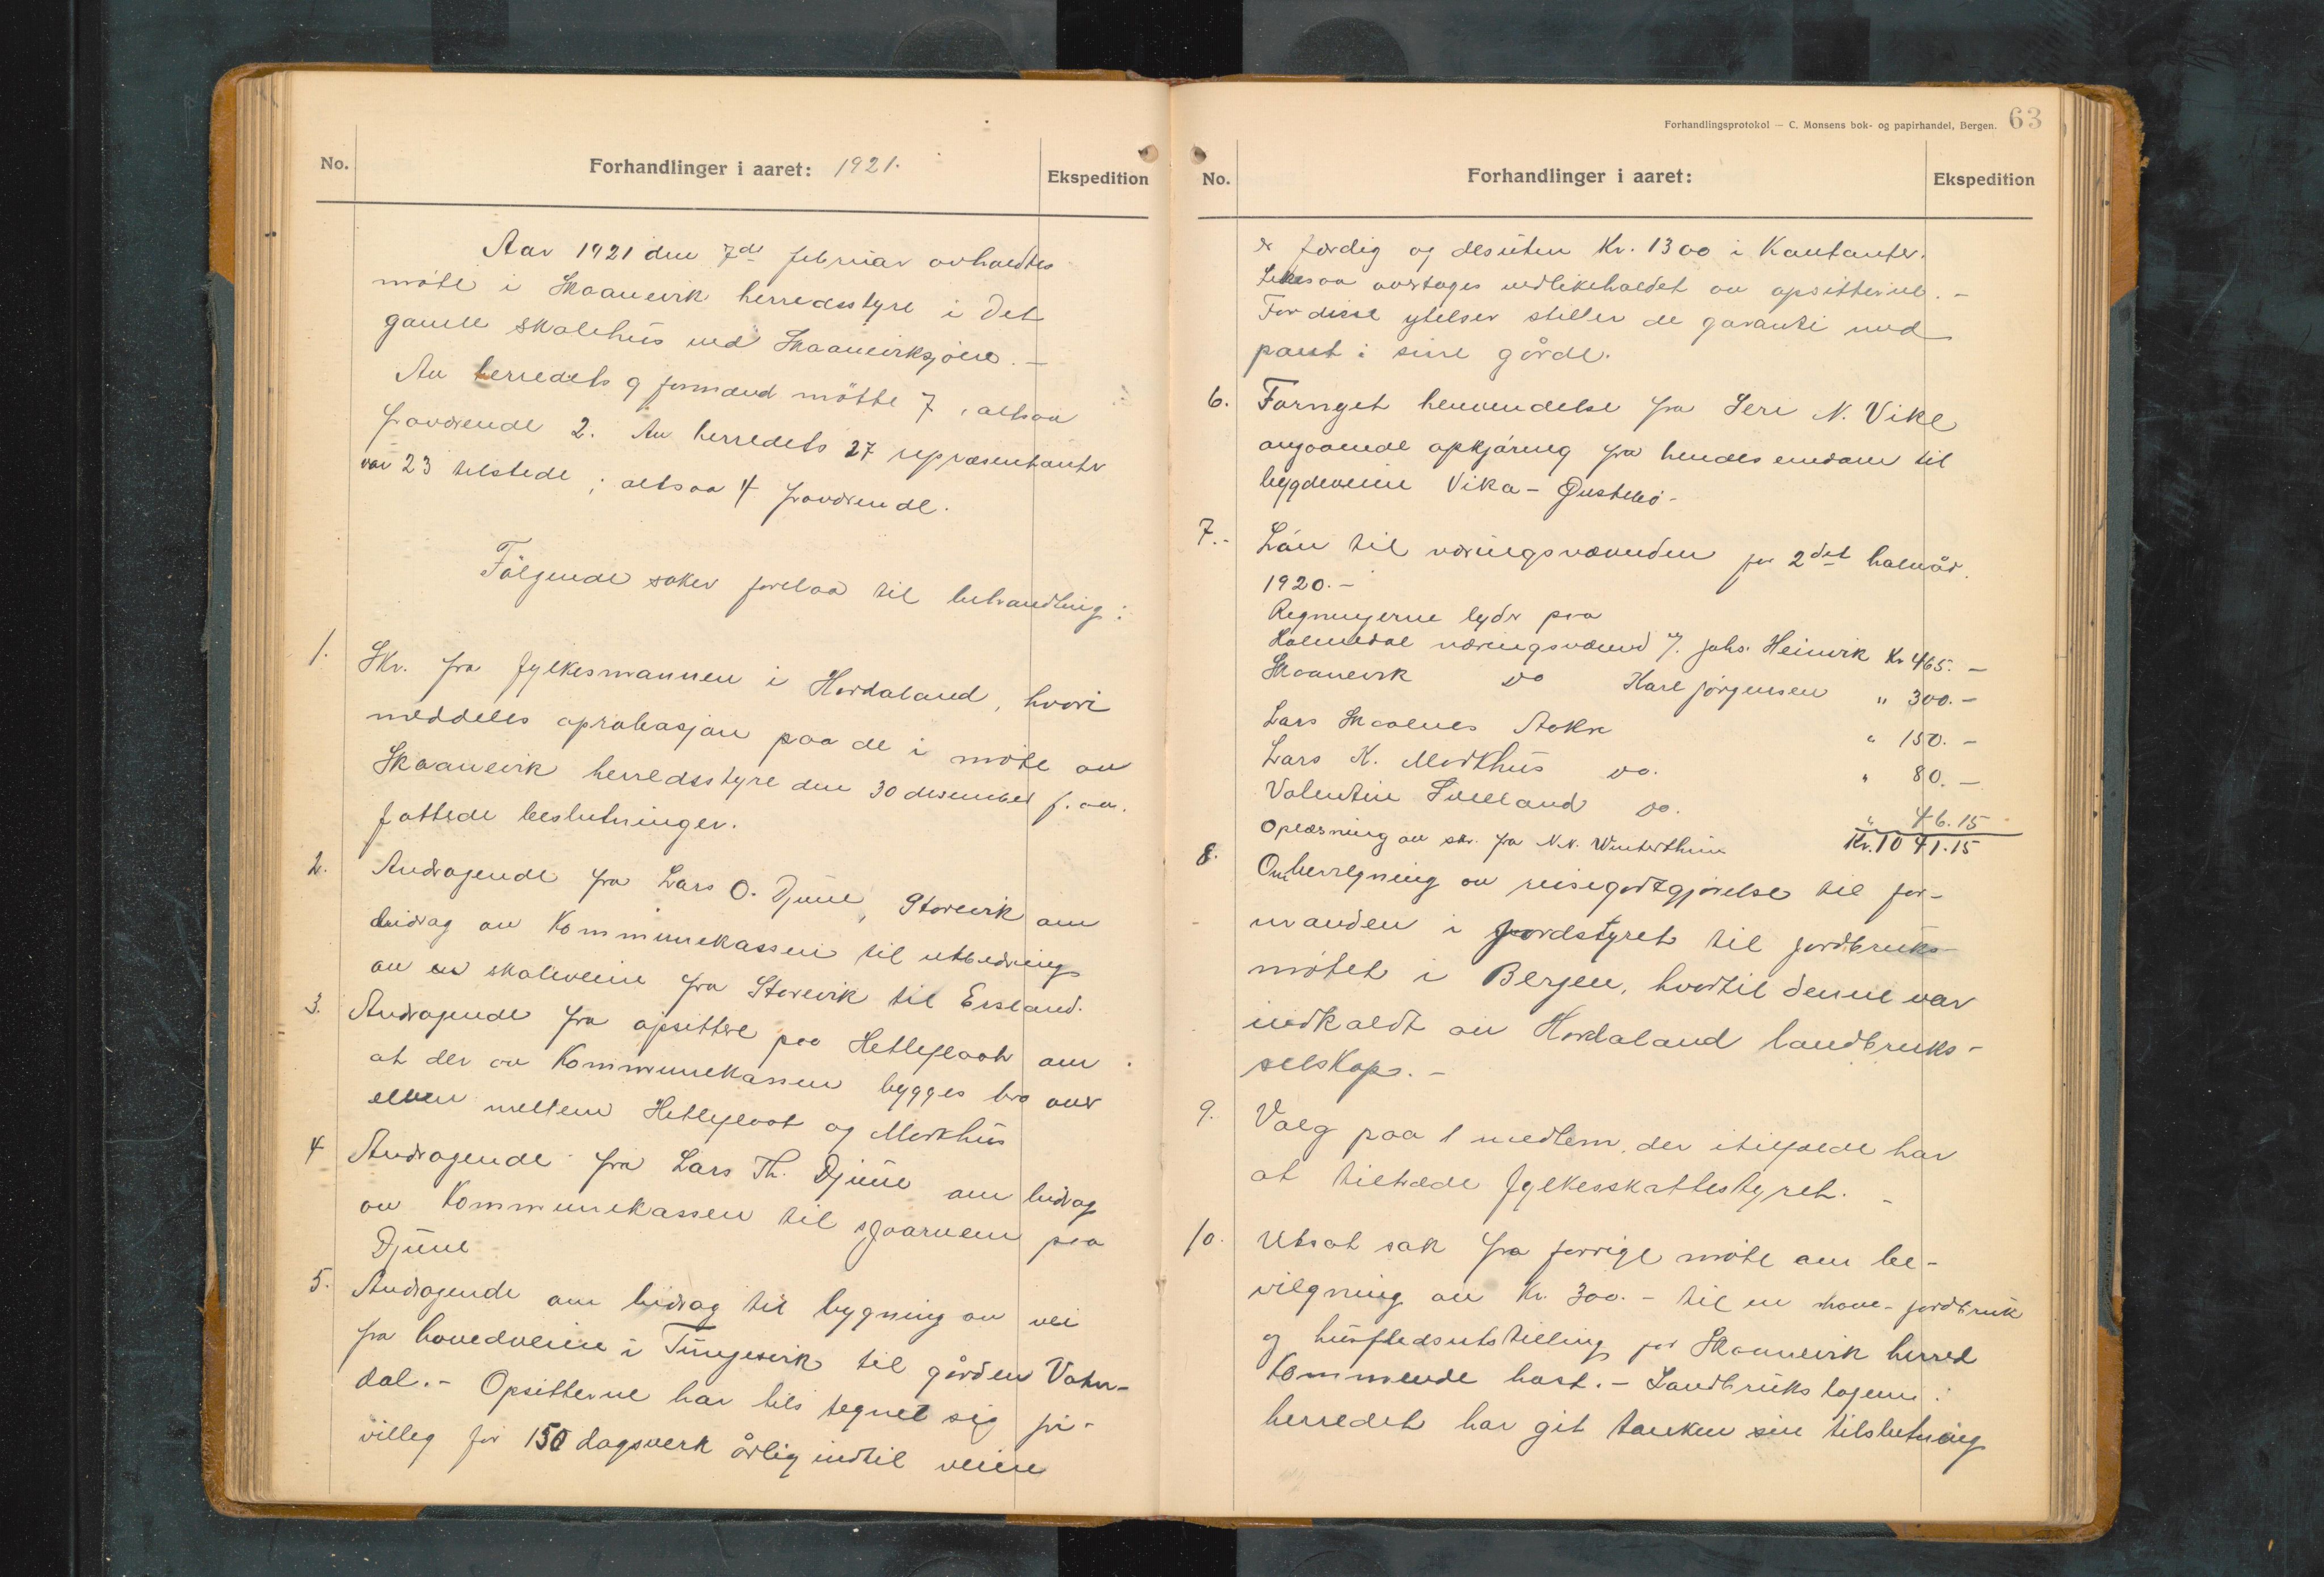 No.
Forhandlinger i aaret: 1921.
Ekspedition
Aar 1921 den 7de februar avholdtes
møte i Skaanevik herredsstyre i det
gamle skolehus ved Skaaneviksjøen. –
Av herredets 9 formænd møtte 7, altsaa
fraværende 2. Av herredets 27 repræsentanter
var 23 tilstede; altsaa 4 fraværende.
Følgende saker forelaa til behandling:
1. Skr. fra fylkesmannen i Hordaland, hvori
meddeles aprobasjon paa de i møte av
Skaanevik herredsstyre den 30 desember f. aa.
fattede beslutninger.
2. Andragende fra Lars O. Djuve, Storevik om
bidrag av Kommunekassen til utbedring
av en skoleveie fra Storevik til Ersland.
3. Andragende fra opsittere paa Hetleflaat om
at der av Kommunekassen bygges bro over
elven mellem Hetleflaat og Morkhus
4 Andragende fra Lars Th. Djuve om bidrag
av Kommunekassen til paa
Djuve
5. Andragende om bidrag til bygning av vei
fra hovedveien i Tungesvik til gården Vater-
dal. – Opsitterne har tils tegnet sig fri-
villeg for 150 dagsverk årlig indtil veien
Forhandlingsprotokol – C. Monsens bok- og papirhandel, Bergen. 63
No.
Forhandlinger i aaret:
Ekspedition
er færdig og desuten Kr. 1300 i Kontanter.
Likesaa overtages vedlikeholdet av opsitterne. –
For disse ytelser stiller de garanti med
pant i sine gårde.
6. Fornyet henvendelse fra Seri N. Vike
angaaende opkjøring fra hendes eiendom til
bygdeveien Vika – Østebø.
7. – Lån til næringsnævnden for 2det halvår
1920. –
Regningerne lyder paa
Holmedal næringsnævnd v/. Johs. Heimvik Kr 465. –
Skaanevik do Karl Jørgensen " 300. –
Lars Skaalnes Aakre " 150. –
Lars K. Morkhus do. " 80. –
Valentin Svelland do. " 46.15
Oplæsning av skr. fra N.N. Winterthun Kr. 1041.15
8. Omberegning av reisegodtgjørelse til for-
manden i jordstyret til jordbruks-
møtet i Bergen, hvortil denne var
indkaldt av Hordaland landbruks-
selskap. –
9. Valg paa 1 medlem, der itilfælde har
at tiltræde fylkesskattestyret. –
10. Utsat sak fra forrige møte om be-
vilgning av Kr. 300. – til en have- jordbruk
og husflidsutstilling for Skaanevik herred
kommende høst. – Landbrukslagene i
herredet har git tanken sin tilslutning